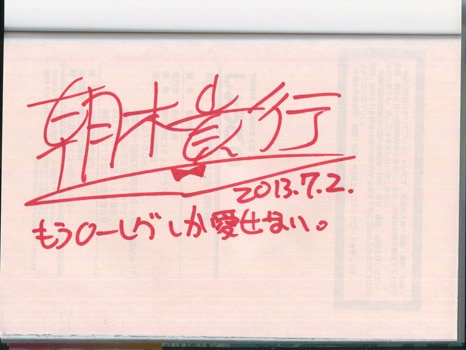 朝木貴行
2013.7.2.
もうローレグしか愛せない。